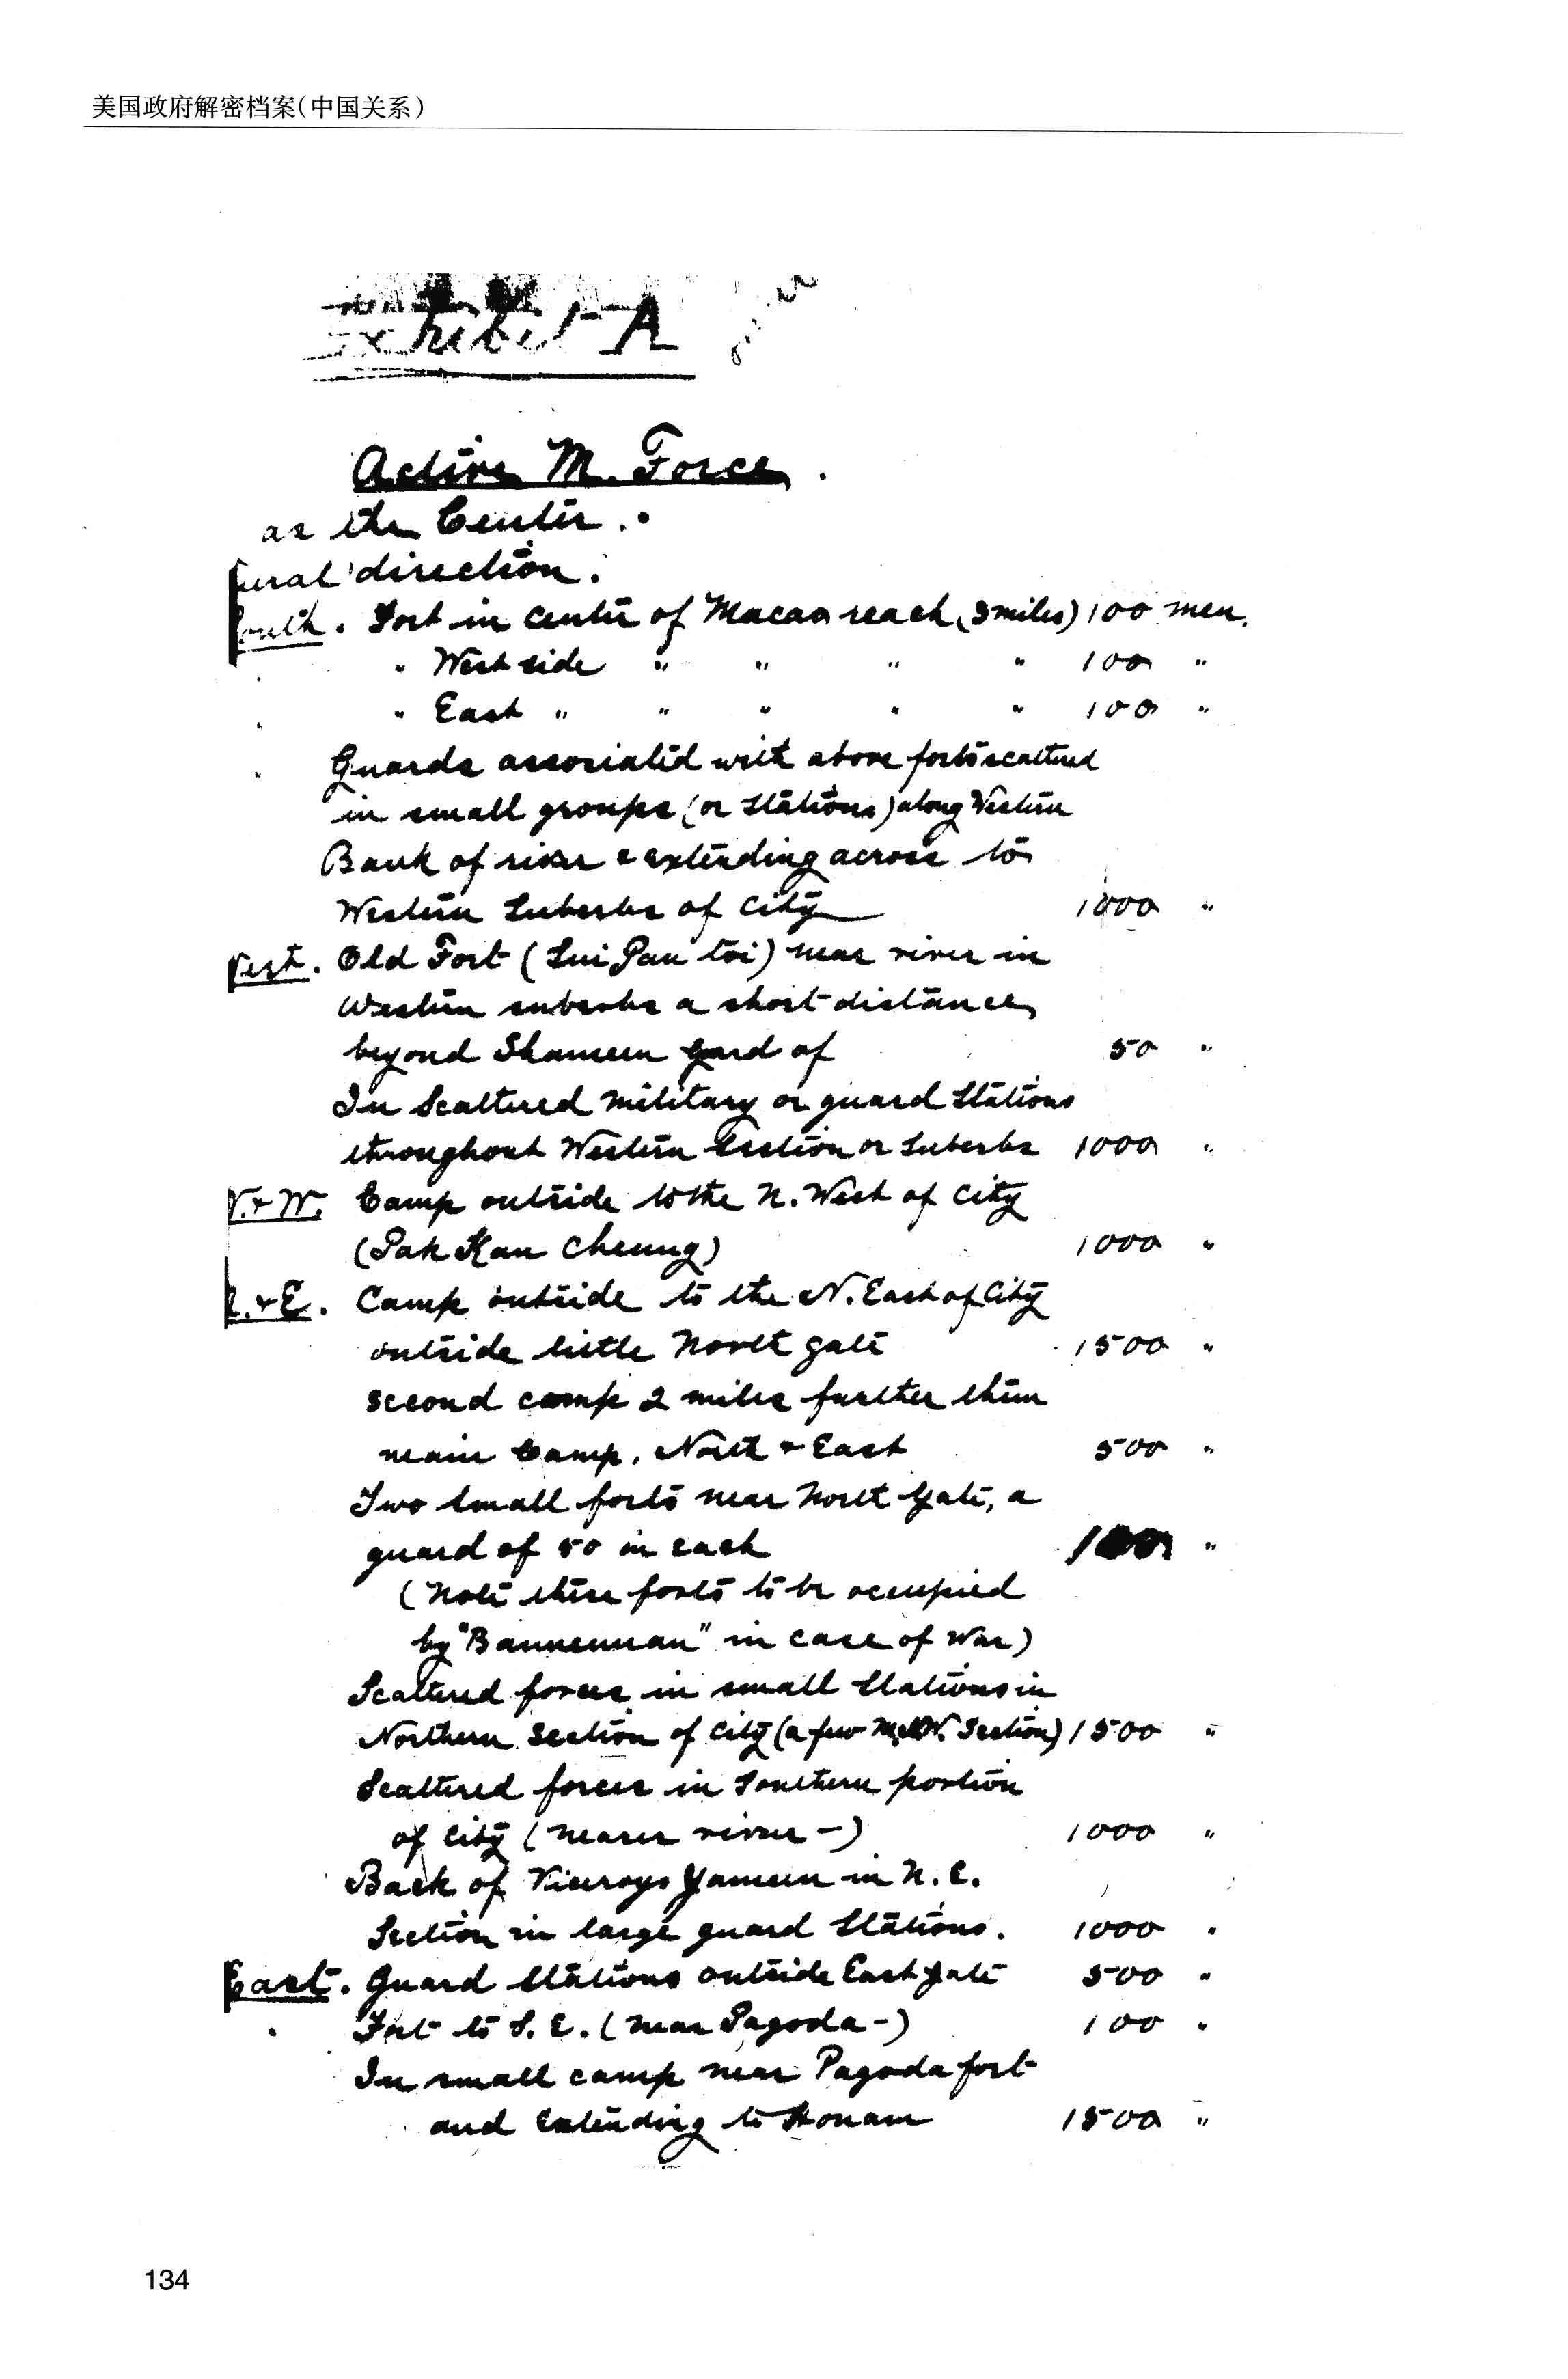 美国政府解密档案(中国关系)
Exhibit A
Active M. Force.
as the Center.
direction.
South. Fort in center of Macao reach (3 miles) 100 men.
" West side " " " " 100 "
" East " " " " " 100 "
Guards associated with above forts scattered
in small groups (or stations) along Western
Bank of river & extending across to
Western Suberbs of City 1000 "
West. Old Fort (Lui Pau toi) near river in
Western suberbs a short distance
beyond Shameen gard of 50 "
In Scattered military or guard stations
throughout Western Section or Suberbs 1000 "
N. & W. Camp outside to the N. West of City
(Pak Kau Cheung) 1000 "
N. & E. Camp outside to the N. East of City
outside little North gate 1500 "
second camp 2 miles further then
main Camp, North & East 500 "
Two small forts near North Gate, a
guard of 50 in each 100 "
(Note these forts to be occupied
by "Bannerman" in case of War)
Scattered forces in small stations in
Northern Section of City (a few in N.W. Section) 1500 "
Scattered forces in Southern portion
of City (nearer river -) 1000 "
Back of Viceroys Yameen in N. E.
Section in large guard stations. 1000 "
East. Guard stations outside East gate 500 "
" Fort to S. E. (near Pagoda -) 100 "
In small camp near Pagoda fort
and extending to Honam 1500 "
134